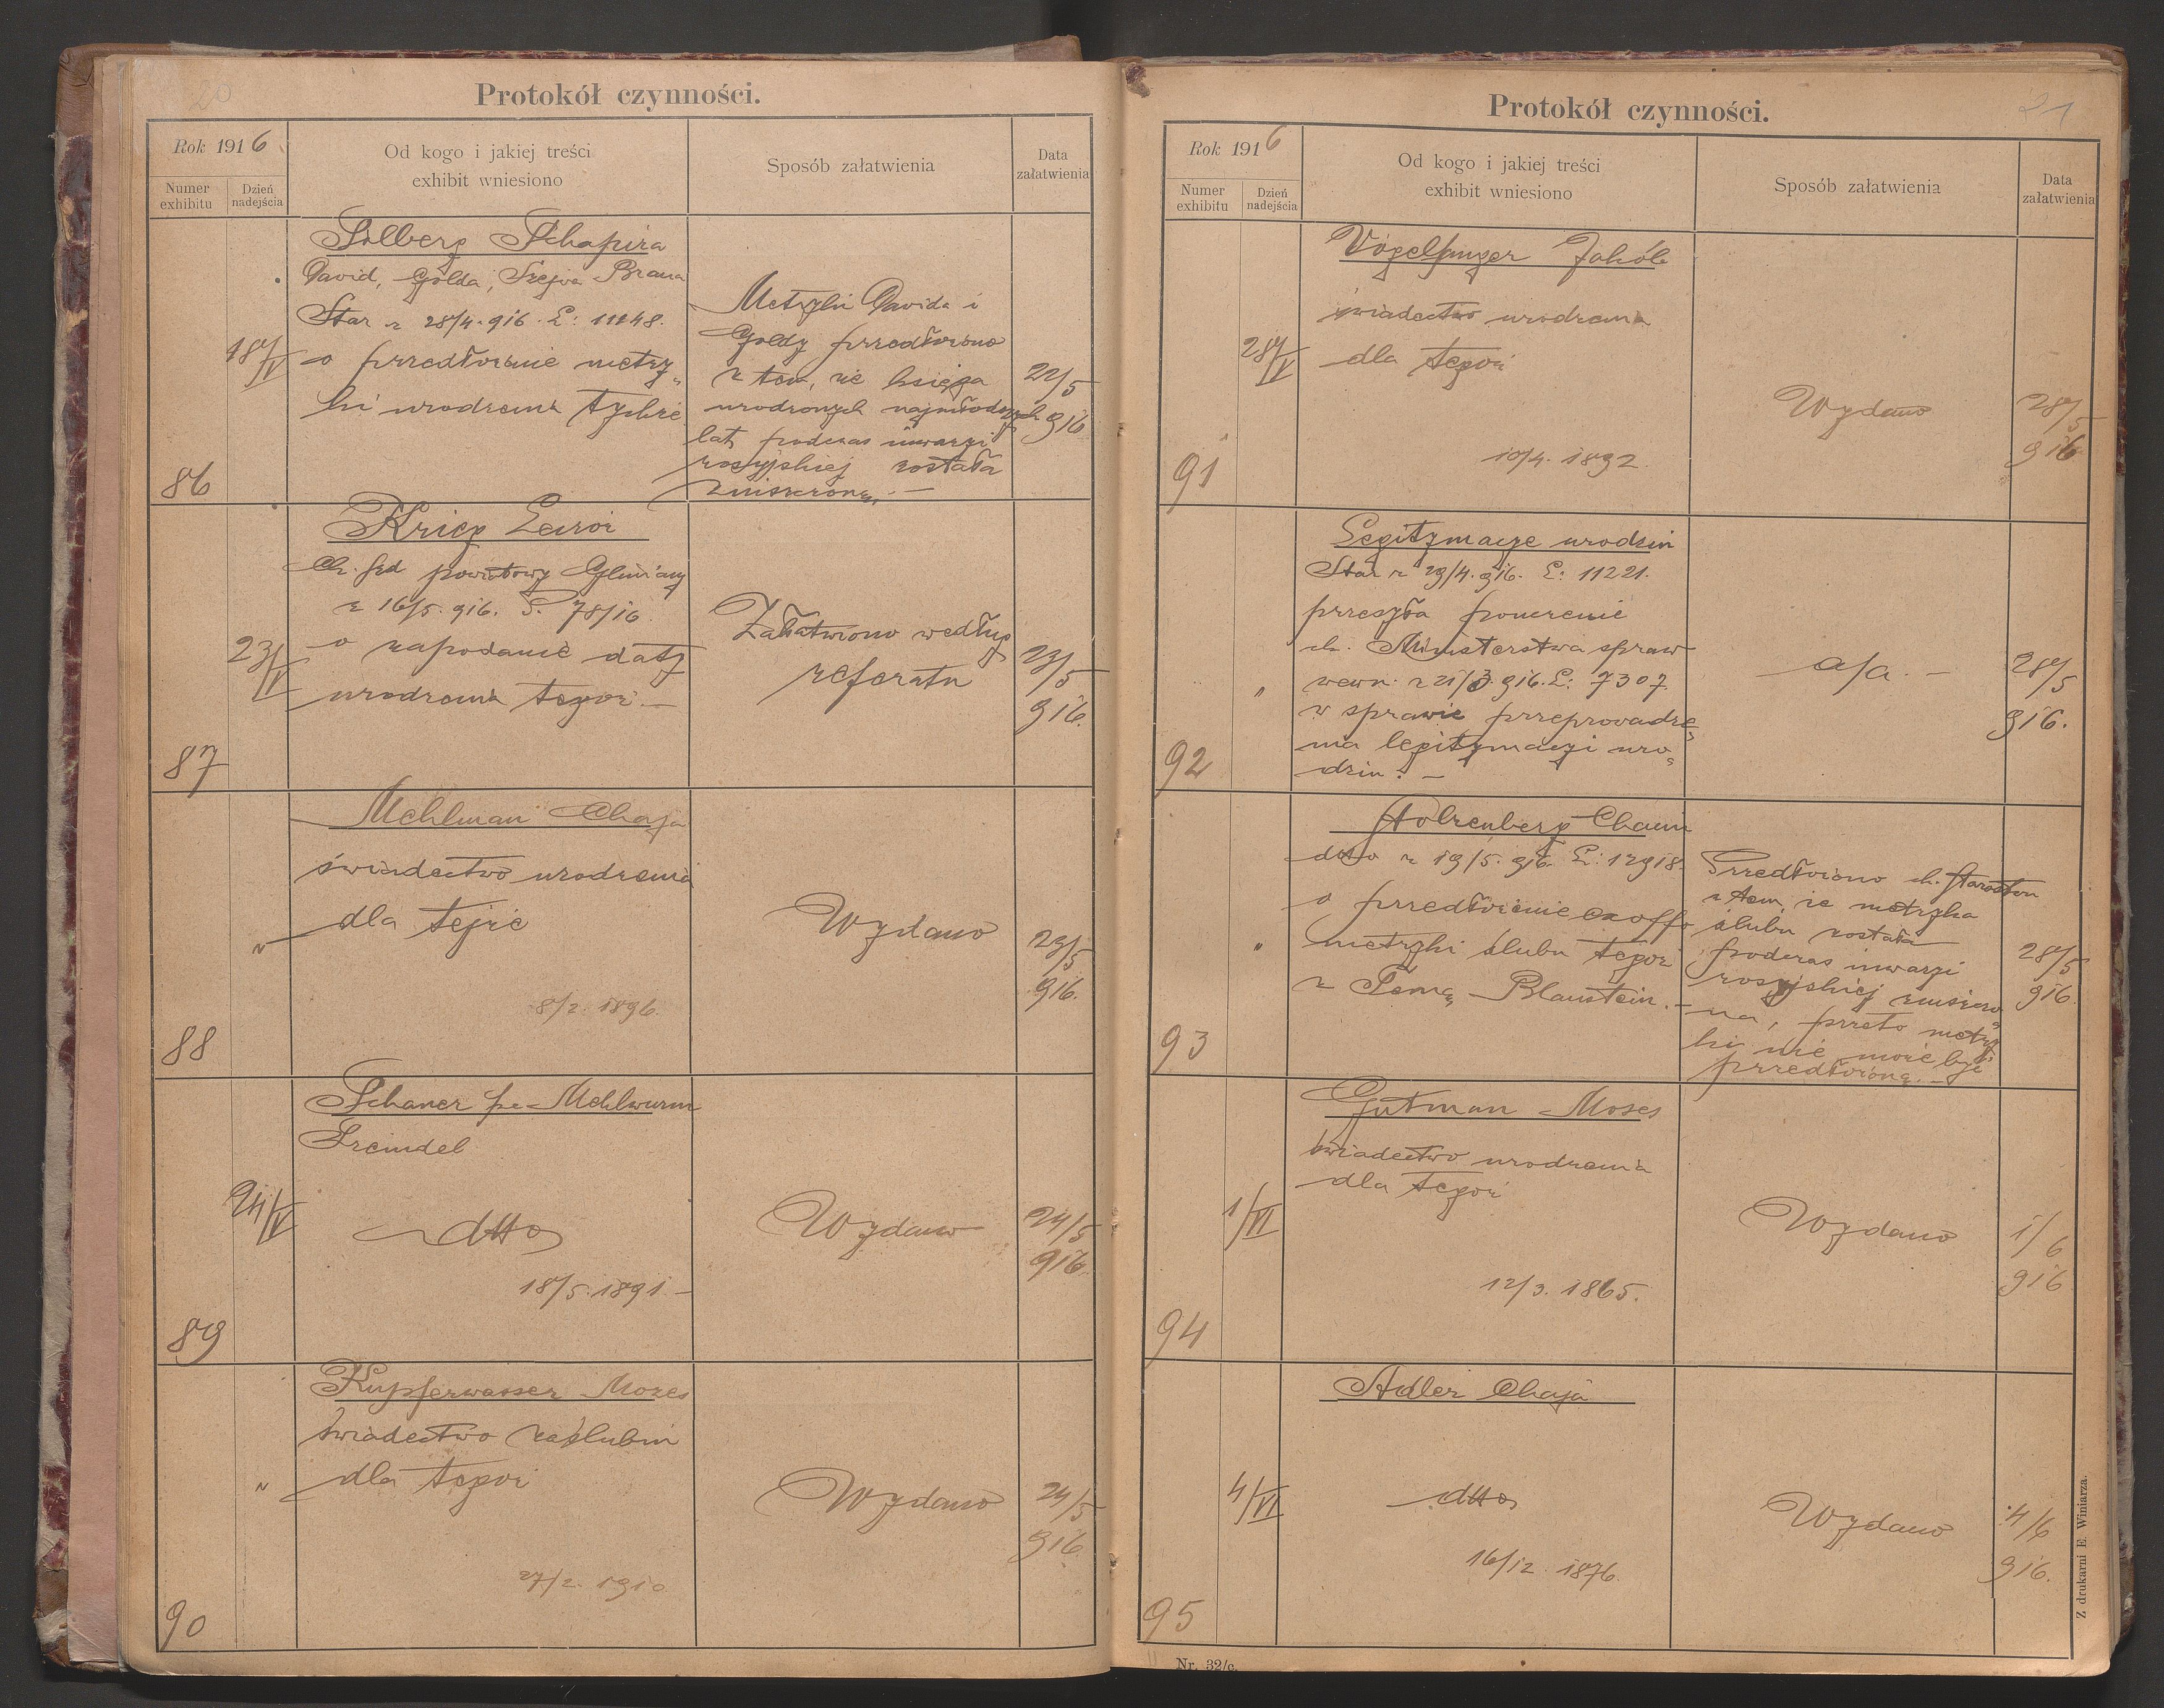 20
Protokół czynności.
Rok 1916
Numer exhibitu
Dzień nadejścia
Od kogo i jakiej treści
exhibit wniesiono
Sposób załatwienia
Data
załatwienia
86
18/V
Silberg Schapira
David, Golda,
Star z 28/4. 916. L: 11148.
o przedłożenie metry„
ki urodzenia tychże
Metryki Davida i
Goldy przedłożono
z tem, że księga
urodzonych najmłodszych
lat podczas inwazyi
rosyjskiej została
zniszczoną. —
22/5
916
87
23/V
Krieg Leizor
Ck. Sąd powiatowy Gliniany
z 16/5. 916. 78/16.
o zapodanie daty
urodzenia tegoż. —
Załatwiono według
referatu
23/5
916.
88
"
Mehlman Chaja
świadectwo urodzenia
dla tejże
8/2. 1896.
Wydano
23/5
916.
89
24/V
Schaner Mehlwurm
dtto
18/5. 1891. —
Wydano
24/5
916.
90
"
Kupferwasser Mozes
świadectwo zaślubin
dla tegoż
27/2. 1910
Wydano
24/5
916.
21
Protokół czynności.
Rok 1916
Numer exhibitu
Dzień nadejścia
Od kogo i jakiej treści
exhibit wniesiono
Sposób załatwienia
Data
załatwienia
91
28/V
Vogelfanger Jakób
świadectwo urodzenia
dla tegoż
10/4. 1892.
Wydano
28/5
916.
92
"
Legitymacye urodzin
Star z 29/4. 916. L: 11221.
przesyła pouczenie
ck. Ministerstwa spraw
wewn. z 21/3. 916. L: 7307
w sprawie przeprowadze„
nia legitymacyi uro„
dzin. —
a/a. —
28/5
916.
93
"
Holzenberg Chaim
dtto z 19/5. 916. L: 12918.
o przedłożenie ex offo
metryki ślubu tegoż
z Blaustein. —
Przedłożono ck. Starostwu
z tem, że metryka
ślubu została
podczas inwazyi
rosyjskiej zniszczo„
na, przeto metry„
ki nie może być
przedłożoną. —
28/5
916.
94
1/VI
Gutman Moses
świadectwo urodzenia
dla tegoż
12/3. 1865.
Wydano
1/6
916
95
4/VI
Adler Chaja
dtto
16/12. 1876.
Wydano
4/6
916.
Nr. 32/c.
Z drukarni E. Winiarza.